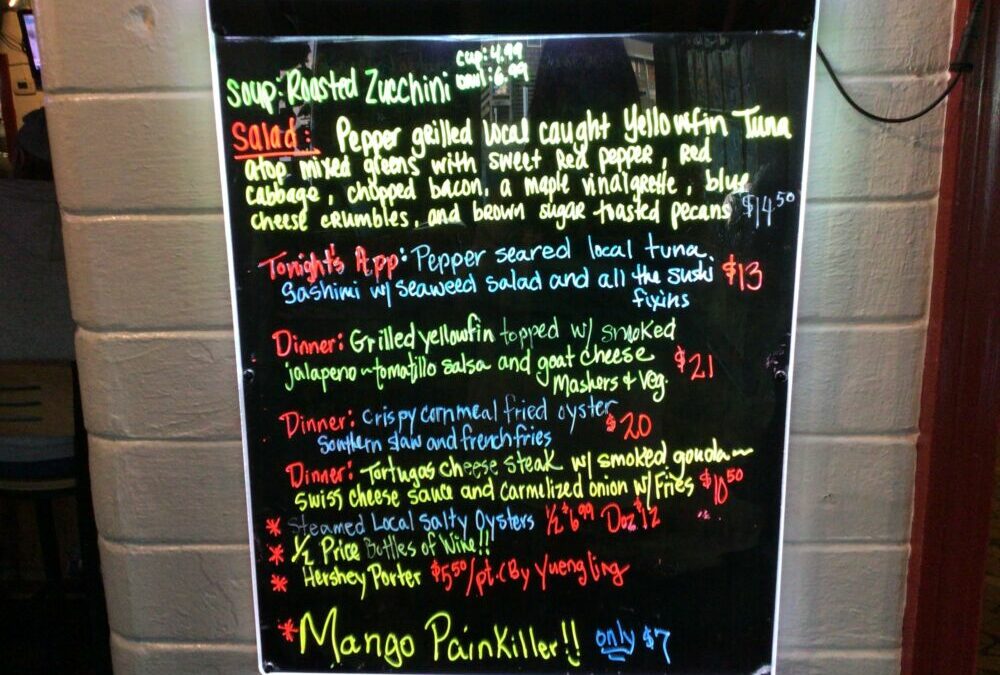 Soup: Roasted Zucchini cup: 4.99
bowl: 6.99
Salad: Pepper grilled local caught Yellowfin Tuna
atop mixed greens with sweet red pepper, red
cabbage, chopped bacon, a maple vinaigrette, blue
cheese crumbles, and brown sugar toasted pecans $14.50
Tonight's App: Pepper seared local tuna
Sashimi w/ seaweed salad and all the sushi $13
fixins
Dinner: Grilled yellowfin topped w/ smoked
jalapeno-tomatillo salsa and goat cheese $21
Mashers & Veg.
Dinner: Crispy cornmeal fried oyster $20
Southern slaw and french fries
Dinner: Tortugas cheese steak w/ smoked gouda~
swiss cheese sauce and carmelized onion w/ Fries $10.50
* Steamed Local Salty Oysters 1/2 $6.99 Doz $12
* 1/2 Price Bottles of Wine!!
* Hershey Porter $5.50/pt. (By Yuengling
* Mango PainKiller!! only $7